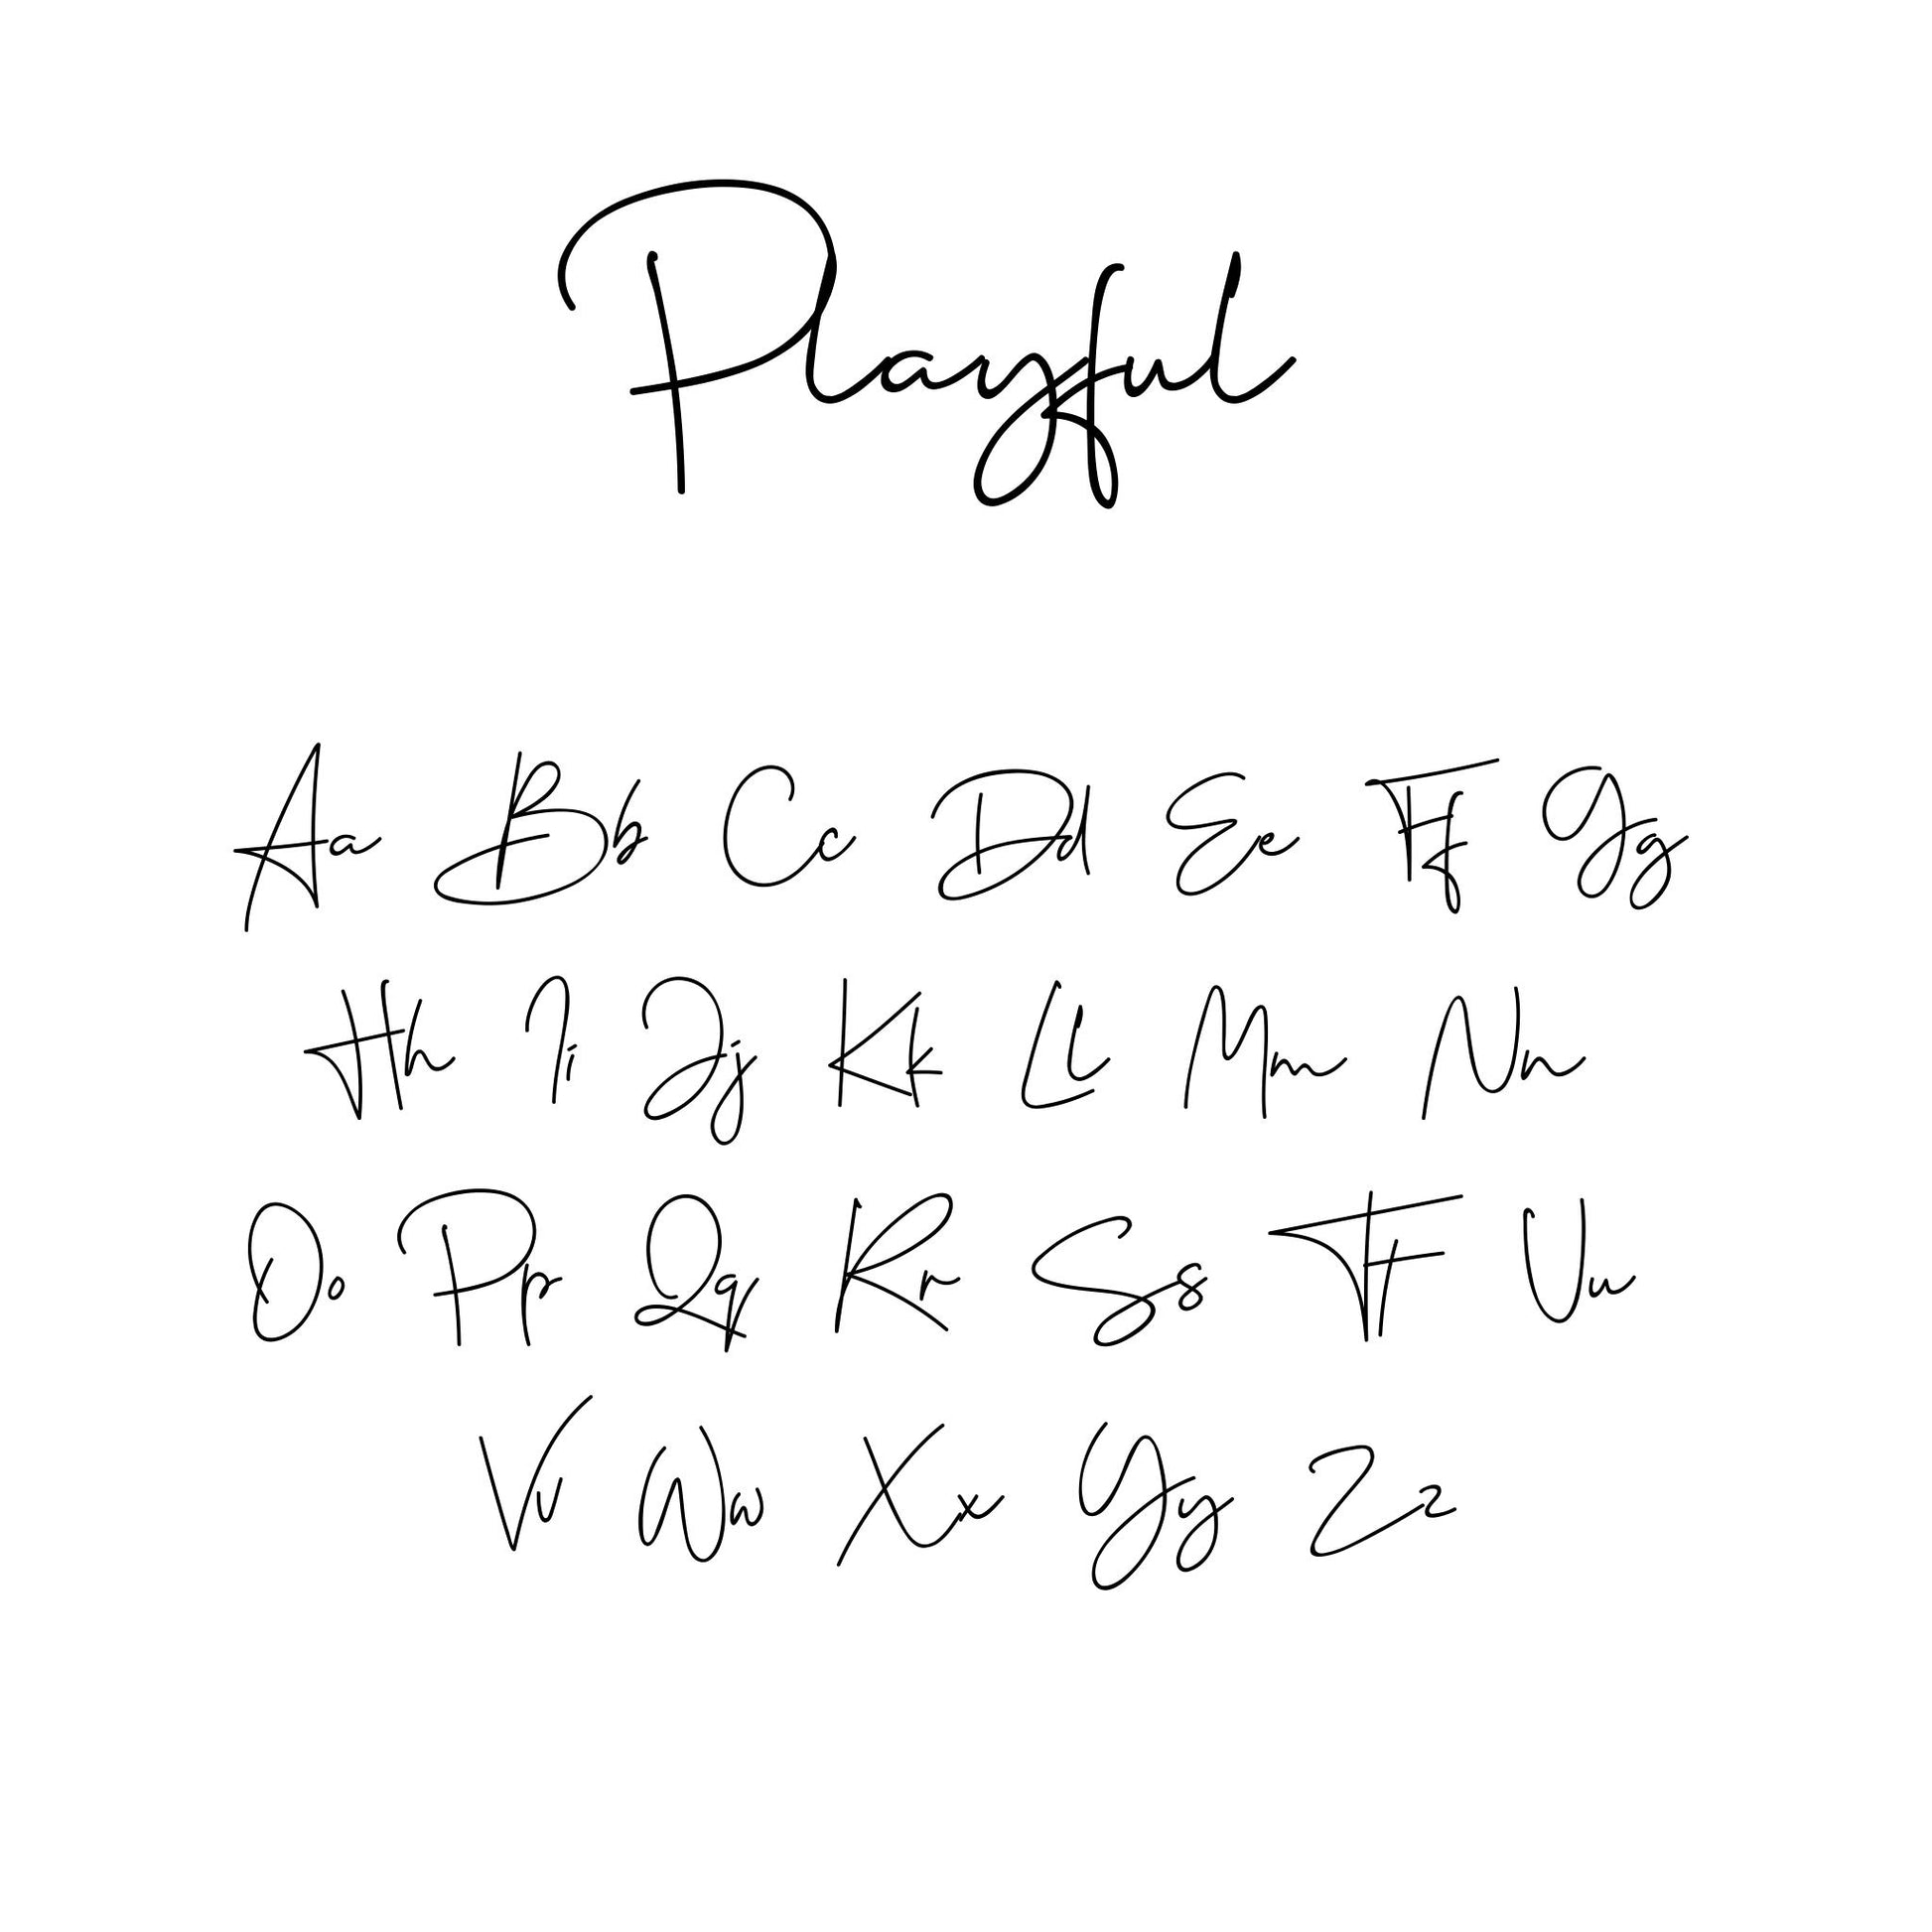 Playful
Aa Bb Cc Dd Ee Ff Gg
Hh Ii Jj Kk Ll Mm Nn
Oo Pp Qq Rr Ss Tt Uu
Vv Ww Xx Yy Zz